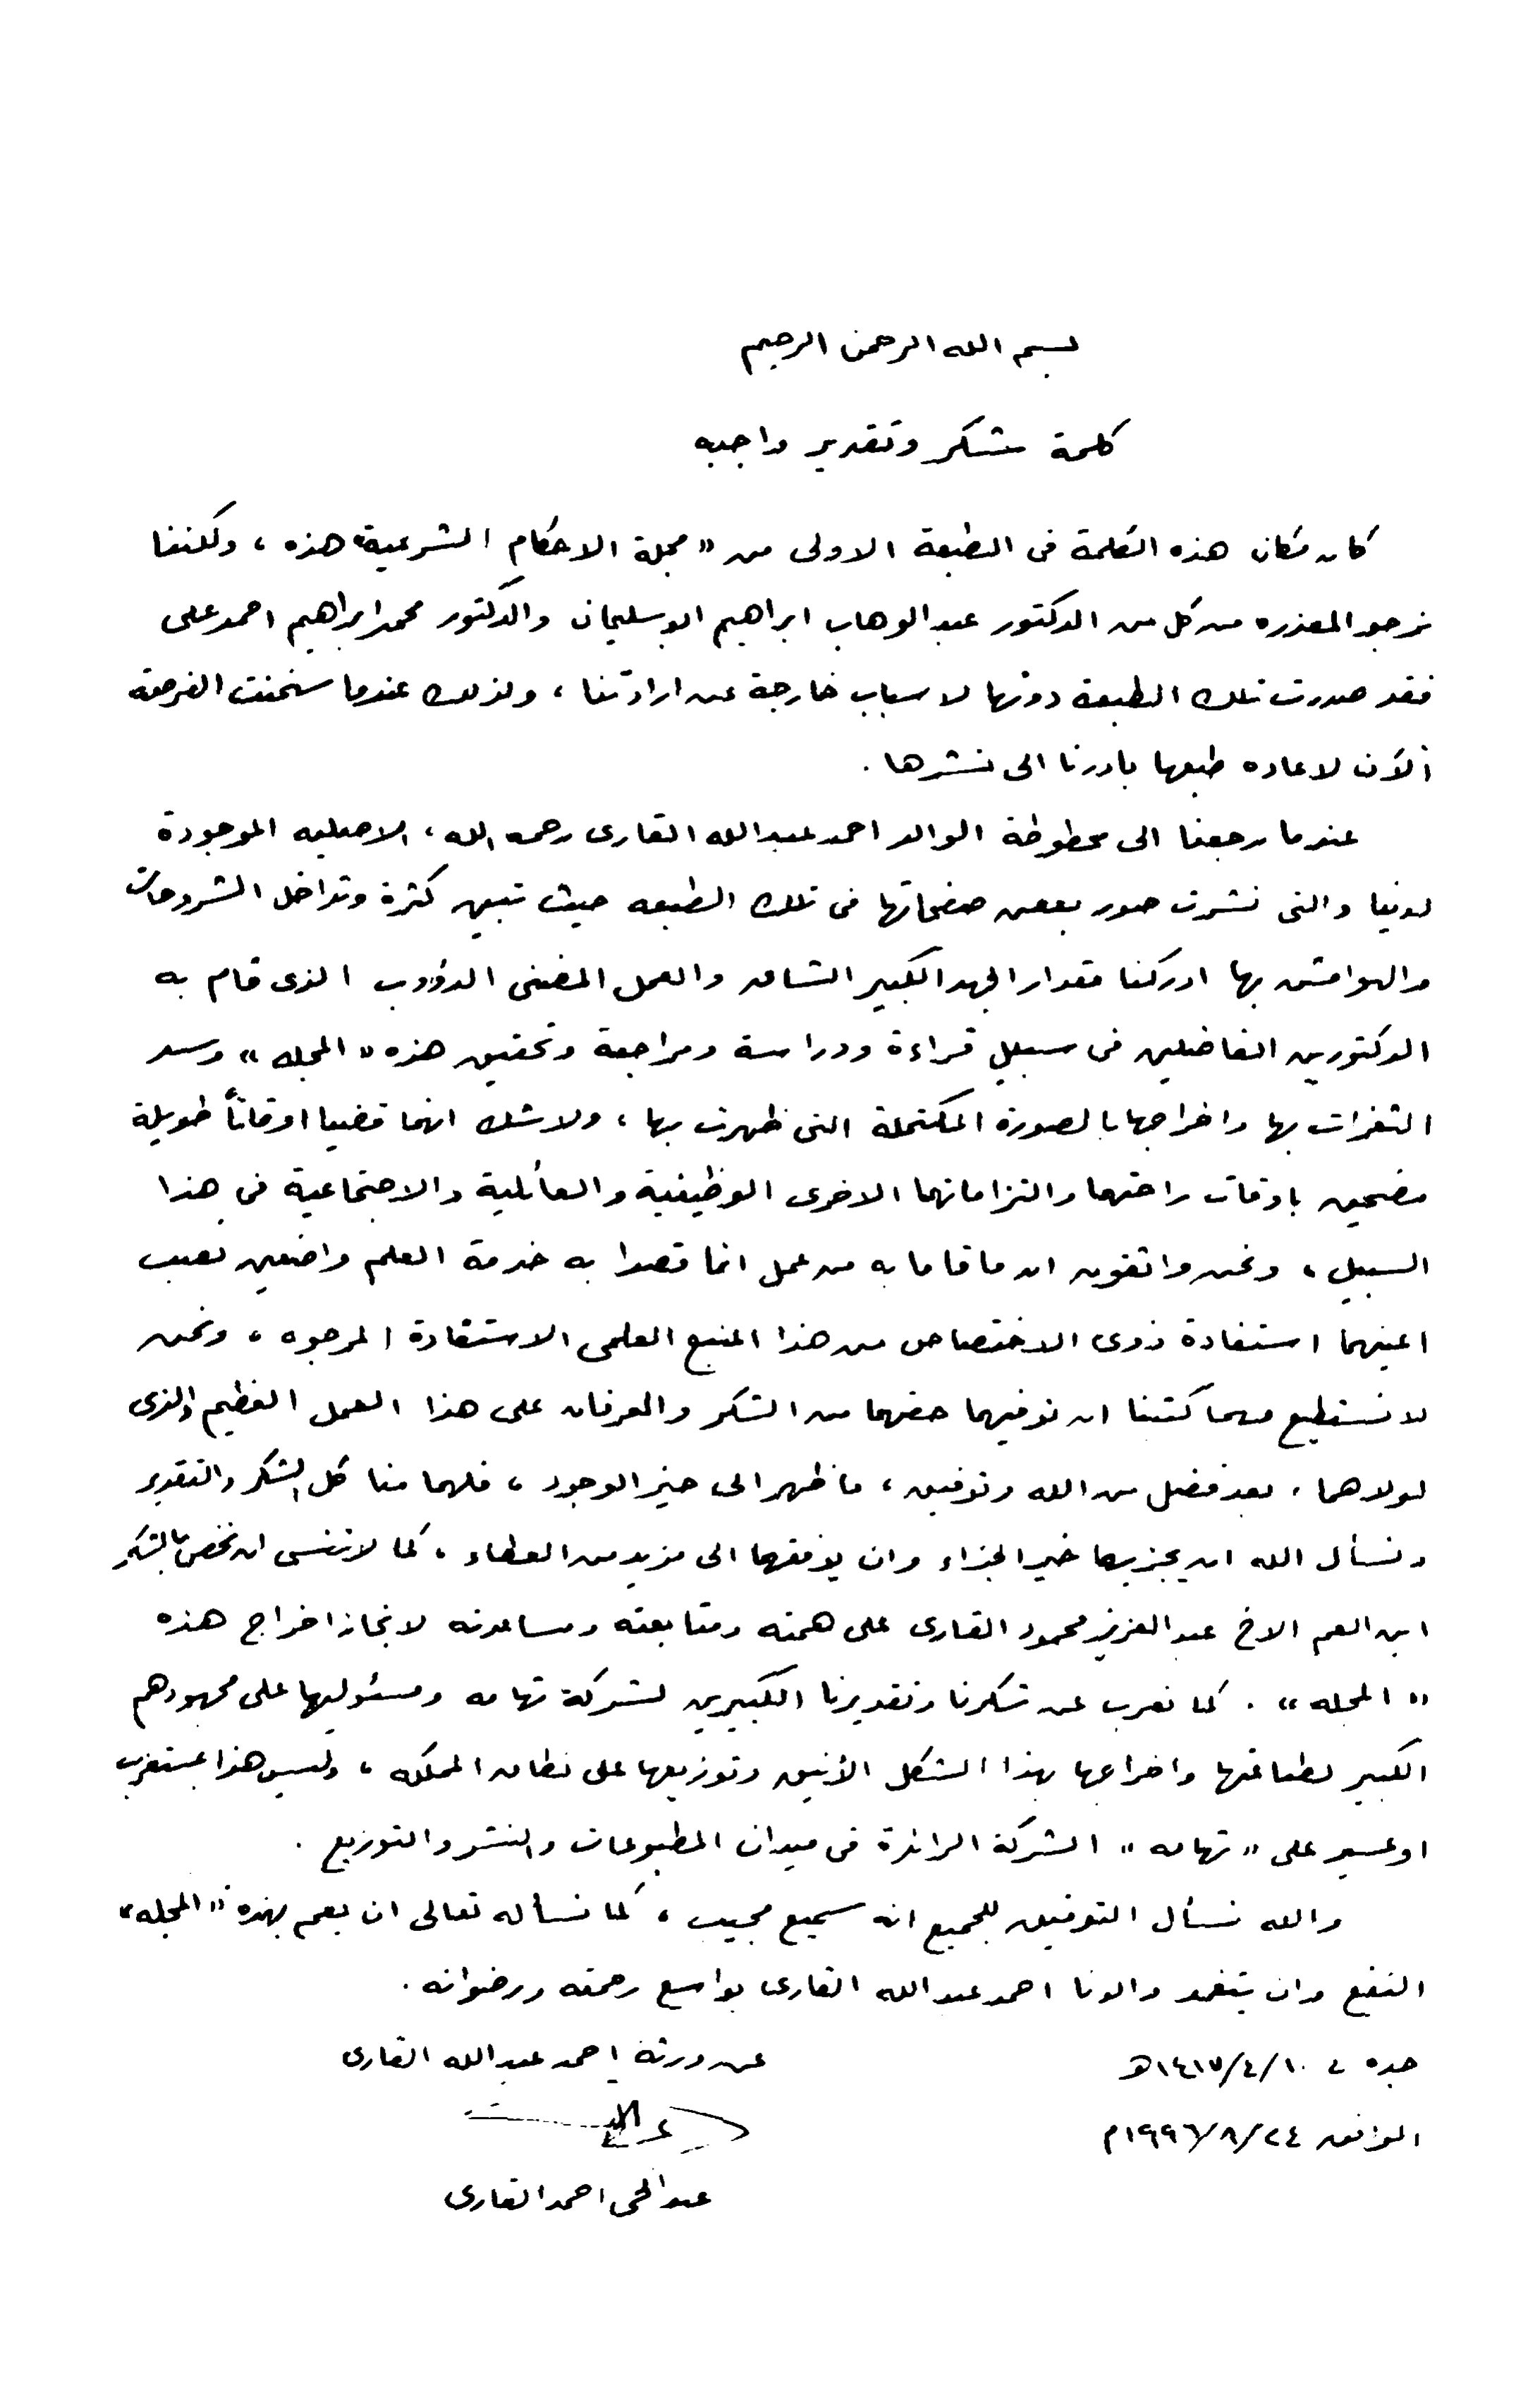 بسم الله الرحمن الرحيم
كلمة شكر وتقدير واجبه
كان مكان هذه الكلمة فى الطبعة الاولى من « مجلة الاحكام الشرعية» هذه ، ولكننا
نرجو المعذره من كل من الدكتور عبد الوهاب ابراهيم ابو سليمان والدكتور محمد ابراهيم احمد على
فقد صدرت تلك الطبعة دونها لاسباب خارجة عن ارادتنا ، ولذلك عندما سنحت الفرصة
الآن لاعاده طبعها بادرنا الى نشرها .
عندما رجعنا الى مخطوطة الوالد احمد عبد الله القارى رحمه الله ، الاصليه الموجودة
لدينا والتى نشرت صور بعض صفحاتها فى تلك الطبعه حيث تبين كثرة وتداخل الشروحات
والهوامش بها ادركنا مقدار الجهد الكبير الشاق والعمل المضنى الدؤوب الذى قام به
الدكتورين الفاضلين فى سبيل قراءة ودراسة ومراجعة وتحقيق هذه « المجله » وسد
الثغرات بها واخراجها بالصورة المكتملة التى ظهرت بها ، ولاشك انهما قضيا اوقاتاً طويلة
مضحين باوقات راحتهما والتزاماتهما الاخرى الوظيفية والعائلية والاجتماعية فى هذا
السبيل ، ونحن واثقون ان ما قاما به من عمل انما قصدا به خدمة العلم واضعين نصب
اعينهما استفادة ذوى الاختصاص من هذا المنبع العلمى الاستفادة المرجوه ، ونحن
لا نستطيع مهما كتبنا ان نوفيهما حقهما من الشكر والعرفان على هذا العمل العظيم والذى
لولاهما ، بعد فضل من الله وتوفيق ، ما ظهر الى حيز الوجود ، فلهما منا كل الشكر والتقدير
ونسأل الله ان يجزيهما خير الجزاء وان يوفقهما الى مزيد من العطاء ، كما لا ننسى ان نخص بالشكر
ابن العم الاخ عبد العزيز محمود القارى على همته ومتابعته ومساعدته لانجاز اخراج هذه
« المجله » . كما نعرب عن شكرنا وتقديرنا الكبيرين لشركة تهامه ومسئوليها على مجهودهم
الكبير لطباعتها واخراجها بهذا الشكل الأنيق وتوزيعها على نطاق المملكه ، وليس هذا بمستغرب
او عسير على « تهامه » الشركة الرائدة فى ميدان المطبوعات والنشر والتوزيع .
والله نسأل التوفيق للجميع انه سميع مجيب ، كما نسأله تعالى ان يعم بهذه « المجله »
النفع وان يتغمد والدنا احمد عبد الله القارى بواسع رحمته ورضوانه .
جده فى ١٤١٧/٤/١٠هـ
عن ورثة احمد عبد الله القارى
الموافق ١٩٩٦/٨/٢٤م
عبد الحى احمد القارى